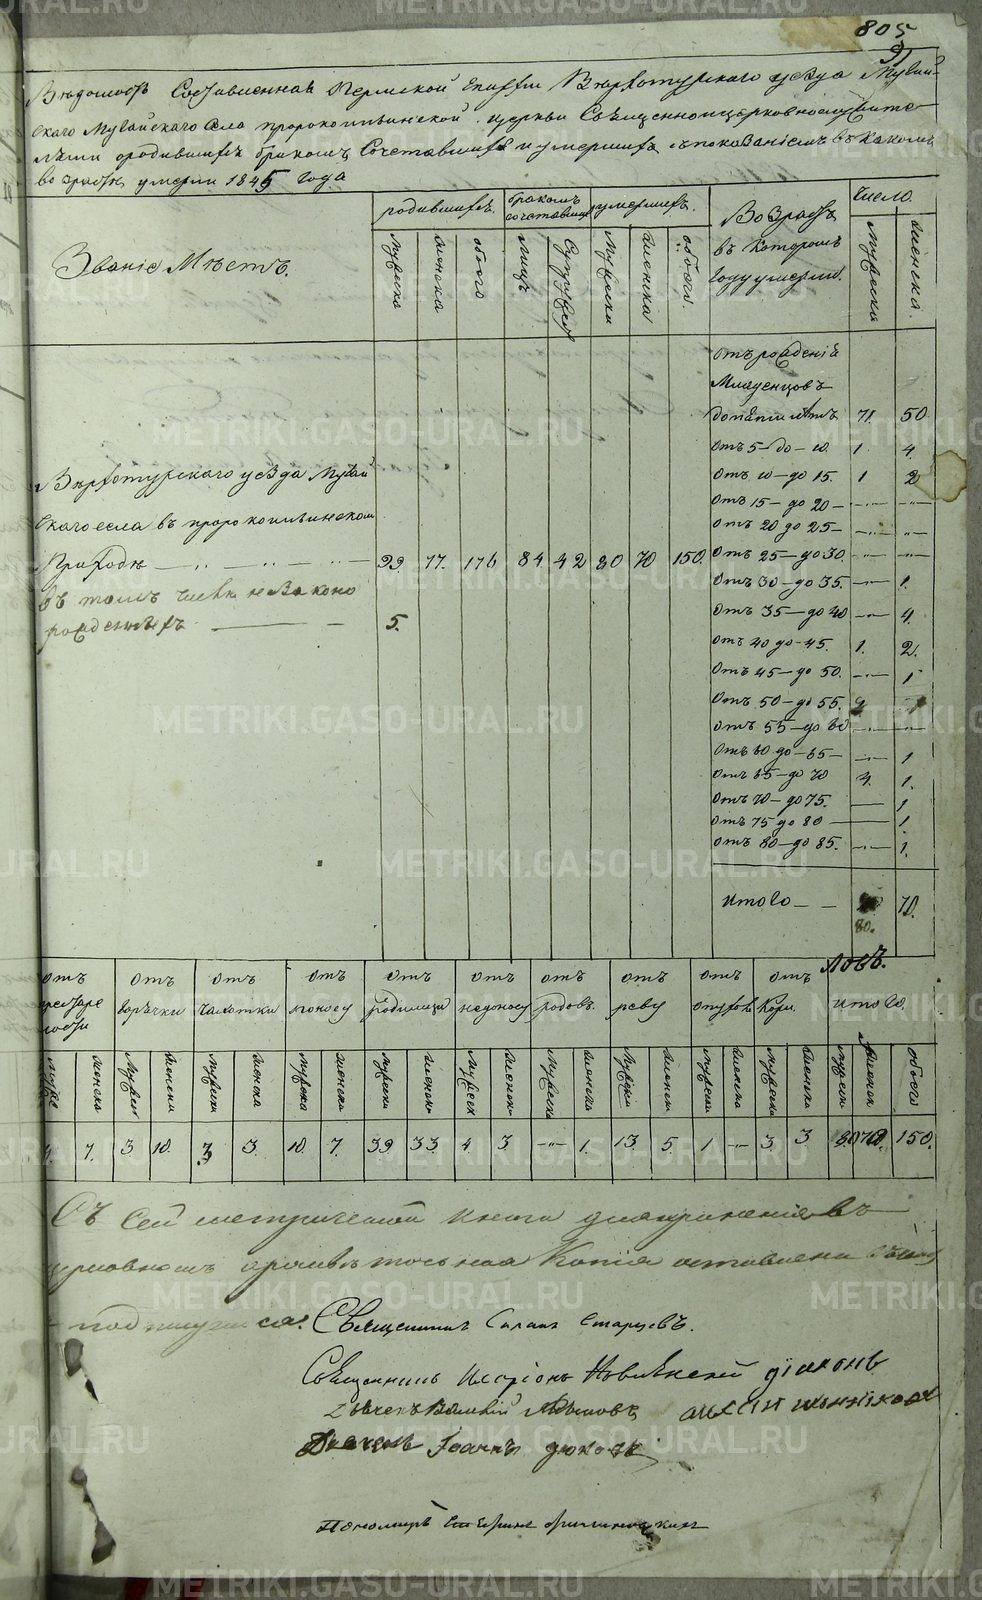 805
91
Вѣдомость Составленная Пермской Епархіи Верхотурскаго уѣзда Мугай-
скаго Мугайскаго села пророкоильинской церкви Священноцерковнослужите-
лѣми ородившихъ бракомъ Сочетавшихъ и умершихъ съпоказаніемъ въ какомъ
возрастѣ умерли 1845 года
Званіе Мѣстъ.
родившихъ.
бракомъ сочетавших
умершихъ.
Возрастъ
въ которомъ
году умерли.
число.
мужеска
женска
обоего
лицъ
Супружеств
мужеска
женска
обоего.
мужеска
женска.
Верхотурскаго уѣзда Мугай
скаго села въ пророкоильинском
Приходѣ 99. 77. 176 84 42 80 70 150.
въ томъ числѣ незаконо
рожденныхъ 5.
отъ рожденія
Младенцовъ
до пяти лѣтъ 71. 50
отъ 5 до 10. 1. 4.
отъ 10 до 15. 1 2
отъ 15 до 20
отъ 20 до 25
отъ 25 до 30.
отъ 30 до 35. 1.
отъ 35 до 40 4.
отъ 40 до 45. 1. 2.
отъ 45 до 50. 1
отъ 50 до 55.
отъ 55 до 60
отъ 60 до 65 1
отъ 65 до 70 4. 1.
отъ 70 до 75. 1
отъ 75 до 80 1.
отъ 80 до 85. 1.
итого 80. 70.
отъ престаре лости
отъ горѣчки
отъ чахотки
отъ поносу
отъ родимца
отъ недоносу
отъ родовъ.
отъ реву
отъ опухов
отъ Кори.
итого.
мужес женска мужес женска мужеска женска мужеска женска мужеска женска мужеск женска мужеска женска мужеска женска мужеска женска мужеска женска мужеск женск обоего
4. 7. 3 10. 3. 3. 10. 7. 39 33 4. 3. 1. 13. 5. 1 3 3 80 70. 150.
Съ Сей метрической книги для храненія въ
церковномъ архивѣ точьная Копія оставлена
подпишуемся. Священникъ Силин Старцевъ.
Священникъ Иларіонъ Новинской дїаконъ
Іоаннъ дюковъ
Пономарь